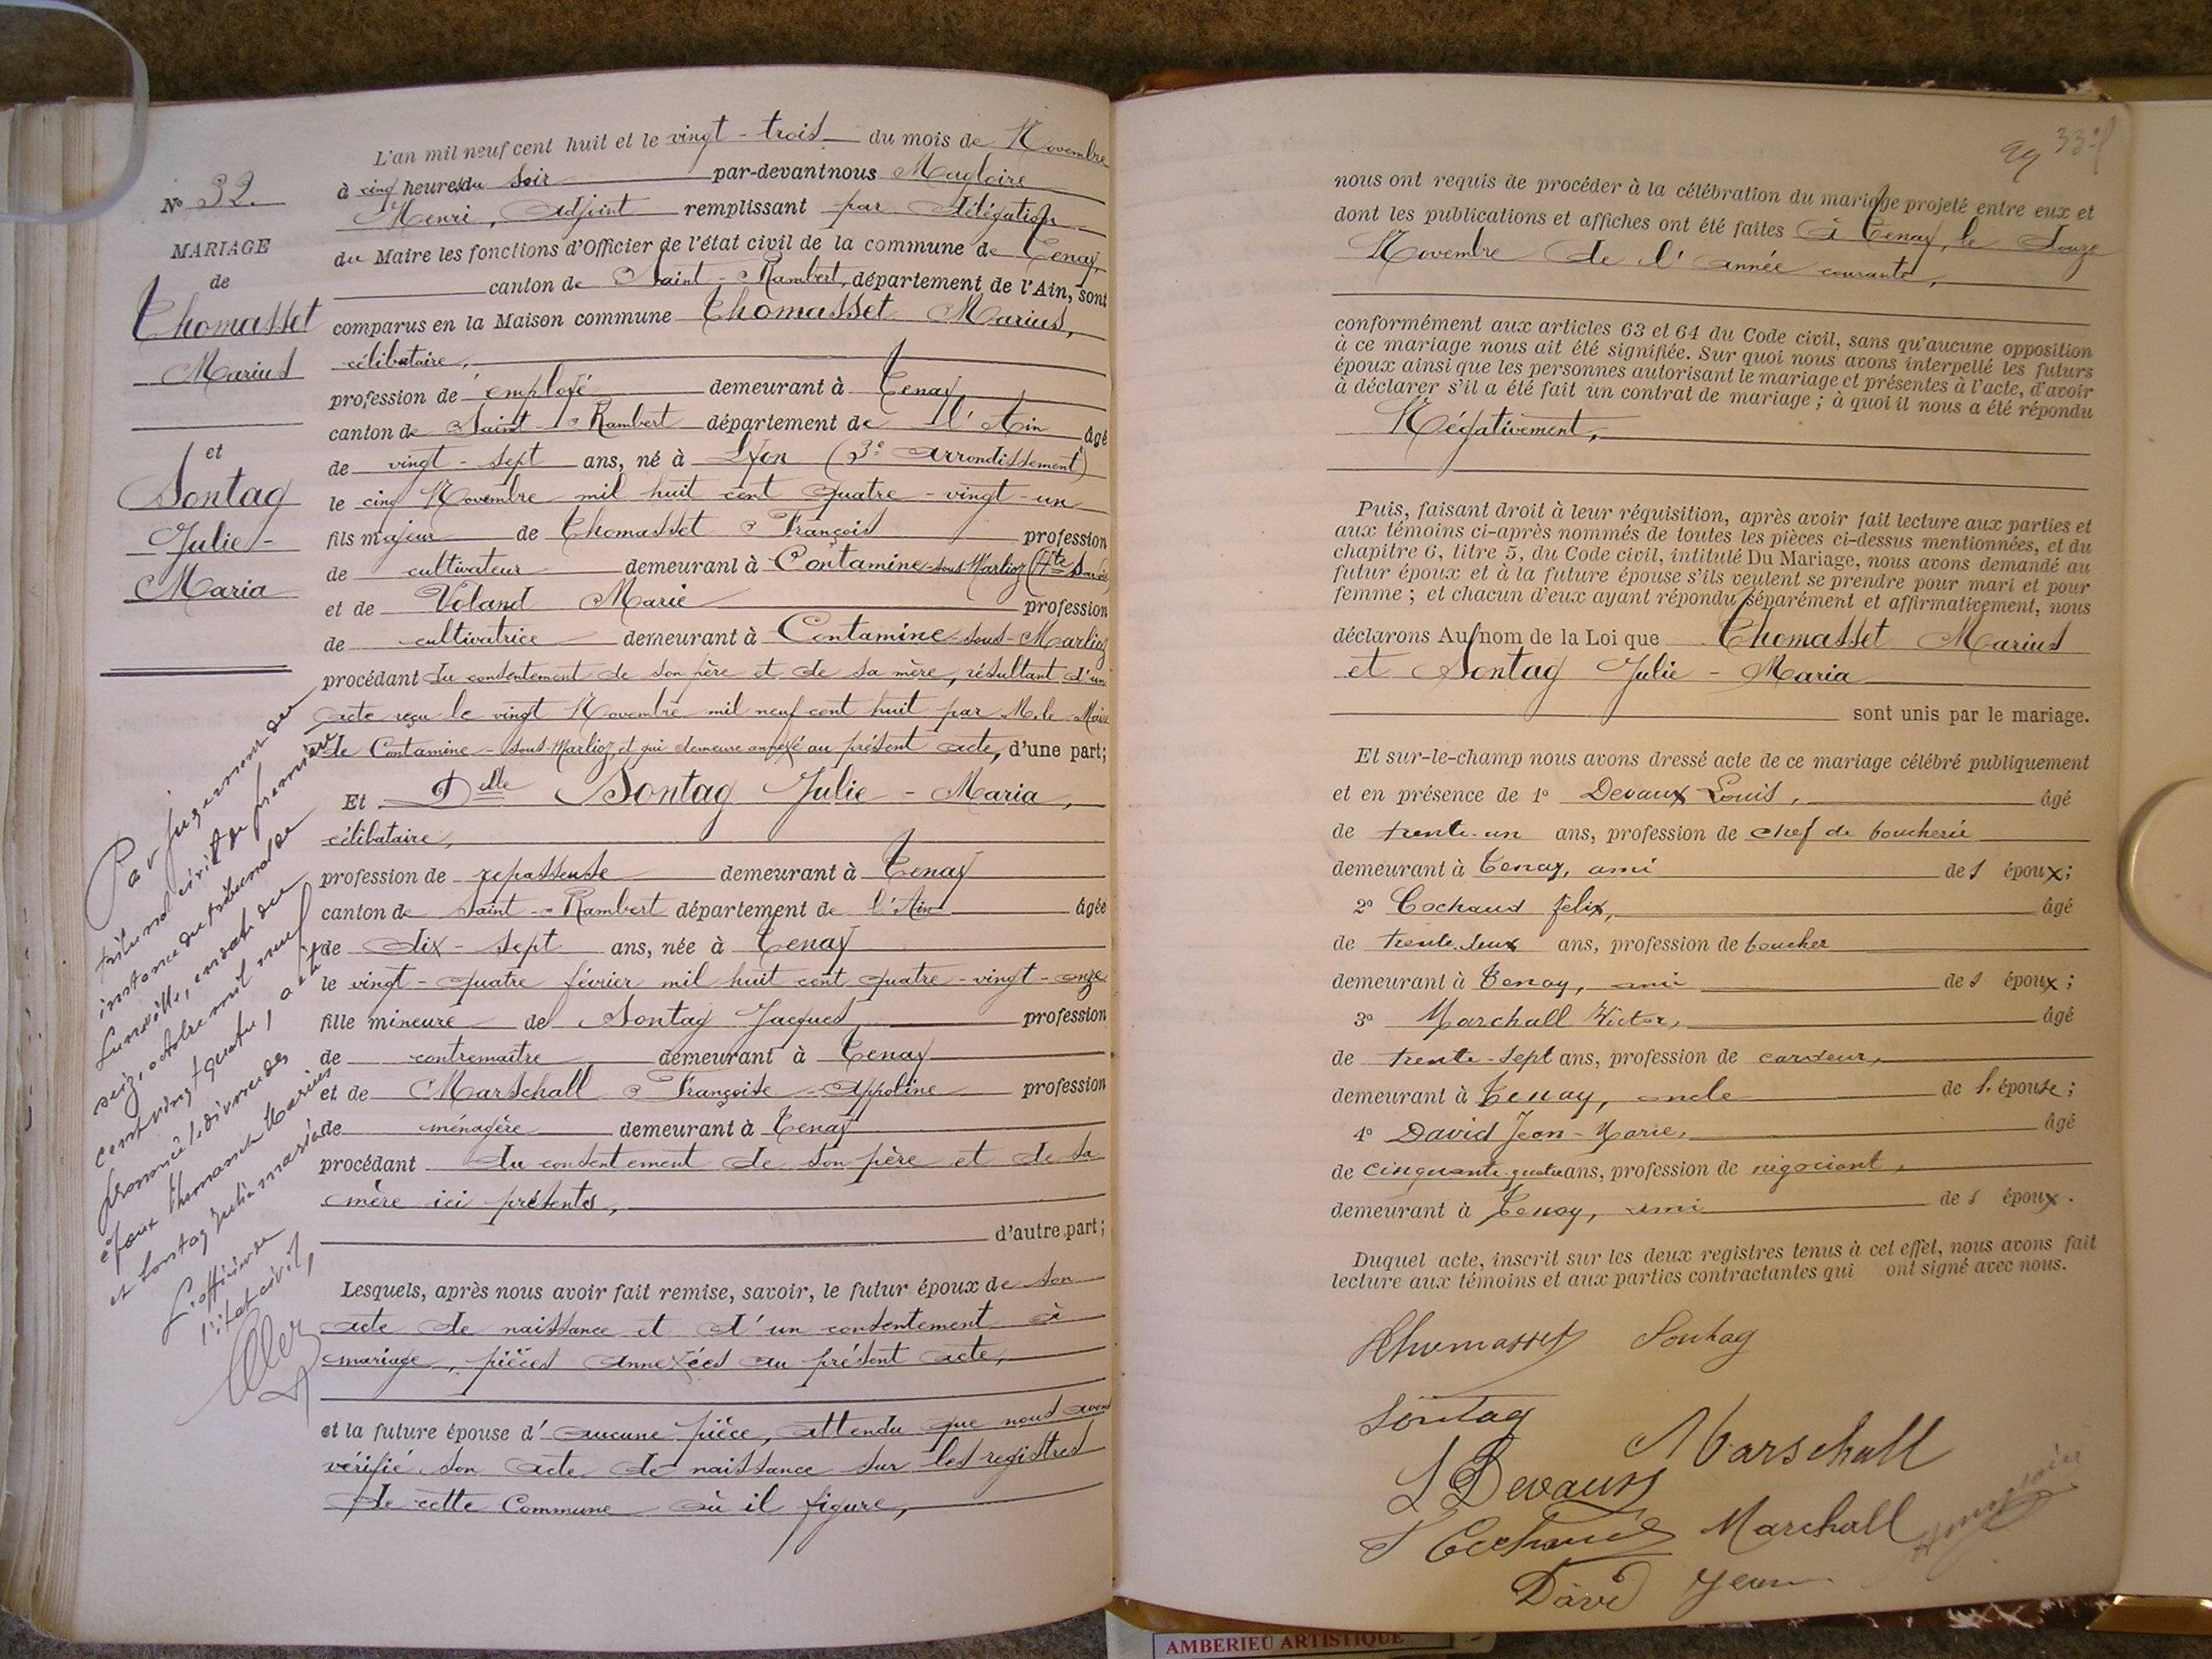 N° 32.
MARIAGE
de
Thomasset
Marius
et
Sontag
Julie-
Maria
Par jugement du
tribunal civil de première
instance du tribunal de
Lunéville, en date du
seize octobre mil neuf
cent vingt quatre, a été
prononcé le divorce des
époux Thomasset Marius
et Sontag Julie Maria
L'officier de
l'état civil,
L'an mil neuf cent huit et le vingt-trois du mois de Novembre
à cinq heures du soir par-devant nous Magloire
Henri, Adjoint remplissant par délégation
du Maire les fonctions d'Officier de l'état civil de la commune de Tenay,
canton de Saint-Rambert, département de l'Ain, sont
comparus en la Maison commune Thomasset Marius,
célibataire,
profession de employé demeurant à Tenay
canton de Saint-Rambert département de l'Ain âgé
de vingt-sept ans, né à Lyon (3e arrondissement)
le cinq Novembre mil huit cent quatre-vingt-un
fils majeur de Thomasset François profession
de cultivateur demeurant à Contamine-sous-Marlioz (Hte Savoie)
et de Voland Marie profession
de cultivatrice demeurant à Contamine-sous-Marlioz
procédant du consentement de son père et de sa mère, résultant d'un
acte reçu le vingt Novembre mil neuf cent huit par M. le Maire
de Contamine-sous-Marlioz, et qui demeure annexé au présent acte, d'une part;
Et Delle Sontag Julie-Maria,
célibataire,
profession de repasseuse demeurant à Tenay
canton de Saint-Rambert département de l'Ain âgée
de dix-sept ans, née à Tenay
le vingt-quatre février mil huit cent quatre-vingt-onze
fille mineure de Sontag Jacques, profession
de contremaître demeurant à Tenay
et de Marschall Françoise-Appoline profession
de ménagère demeurant à Tenay
procédant du consentement de son père et de sa
mère ici présents,
d'autre part;
Lesquels, après nous avoir fait remise, savoir, le futur époux de son
acte de naissance et d'un consentement à
mariage, pièces annexées au présent acte,
et la future épouse d'aucune pièce, attendu que nous avons
vérifié son acte de naissance sur les registres
de cette Commune où il figure,
33
nous ont requis de procéder à la célébration du mariage projeté entre eux et
dont les publications et affiches ont été faites à Tenay, le douze
Novembre de l'année courante,
conformément aux articles 63 et 64 du Code civil, sans qu'aucune opposition
à ce mariage nous ait été signifiée. Sur quoi nous avons interpellé les futurs
époux ainsi que les personnes autorisant le mariage et présentes à l'acte, d'avoir
à déclarer s'il a été fait un contrat de mariage; à quoi il nous a été répondu
Négativement,
Puis, faisant droit à leur réquisition, après avoir fait lecture aux parties et
aux témoins ci-après nommés de toutes les pièces ci-dessus mentionnées, et du
chapitre 6, titre 5, du Code civil, intitulé Du Mariage, nous avons demandé au
futur époux et à la future épouse s'ils veulent se prendre pour mari et pour
femme; et chacun d'eux ayant répondu séparément et affirmativement, nous
déclarons Au nom de la Loi que Thomasset Marius
et Sontag Julie-Maria
sont unis par le mariage.
Et sur-le-champ nous avons dressé acte de ce mariage célébré publiquement
et en présence de 1° Devaux Louis, âgé
de trente-un ans, profession de chef de boucherie
demeurant à Tenay, ami des époux;
2° Cochaud Félix, âgé
de trente-deux ans, profession de boucher
demeurant à Tenay, ami des époux;
3° Marchall Victor, âgé
de trente-sept ans, profession de cardeur,
demeurant à Tenay, oncle de l'épouse;
4° David Jean-Marie, âgé
de cinquante-quatre ans, profession de négociant,
demeurant à Tenay, ami des époux.
Duquel acte, inscrit sur les deux registres tenus à cet effet, nous avons fait
lecture aux témoins et aux parties contractantes qui ont signé avec nous.
Thomasset Sontag
Sontag
Marschall
L Devaux
F Cochaud Marchall
David Jean
AMBERIEU ARTISTIQUE